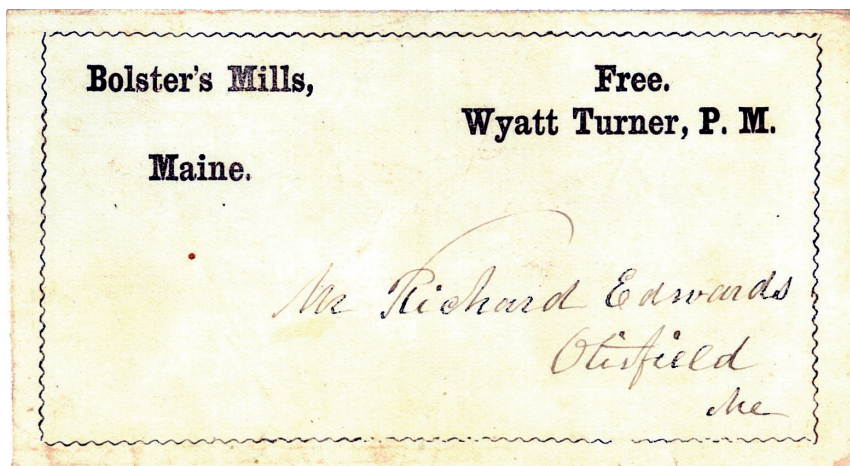 Bolster's Mills,
Maine.
Free.
Wyatt Turner, P. M.
Mr Richard Edwards
Otisfield
Me